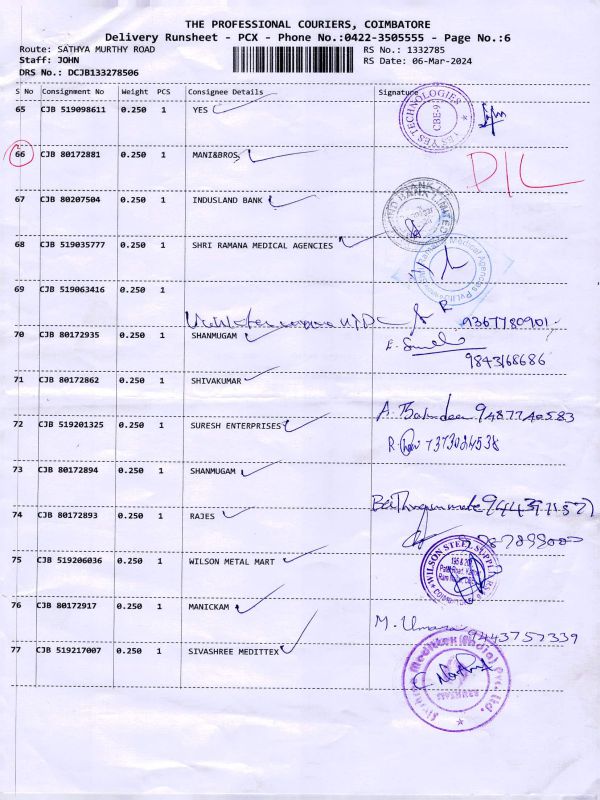 THE PROFESSIONAL COURIERS, COIMBATORE
Delivery Runsheet - PCX - Phone No.:0422-3505555 - Page No.:6
Route: SATHYA MURTHY ROAD RS No.: 1332785
Staff: JOHN RS Date: 06-Mar-2024
DRS No.: DCJB133278506
S No Consignment No Weight PCS Consignee Details Signature
65 CJB 519098611 0.250 1 YES
YES YES TECHNOLOGIES CBE-9
66 CJB 80172881 0.250 1 MANI&BROS
D/L
67 CJB 80207504 0.250 1 INDUSLAND BANK
BANK LIMITED
68 CJB 519035777 0.250 1 SHRI RAMANA MEDICAL AGENCIES
Medical Agencies Pvt.
69 CJB 519063416 0.250 1
9367780901
70 CJB 80172935 0.250 1 SHANMUGAM
9843168686
71 CJB 80172862 0.250 1 SHIVAKUMAR
A. 9487740583
72 CJB 519201325 0.250 1 SURESH ENTERPRISES
R. 7373084538
73 CJB 80172894 0.250 1 SHANMUGAM
74 CJB 80172893 0.250 1 RAJES
75 CJB 519206036 0.250 1 WILSON METAL MART
WILSON STEEL SUPPLIERS
76 CJB 80172917 0.250 1 MANICKAM
M. Umara 9443757339
77 CJB 519217007 0.250 1 SIVASHREE MEDITTEX
Sivashree Medittex (India) Pvt. Ltd.